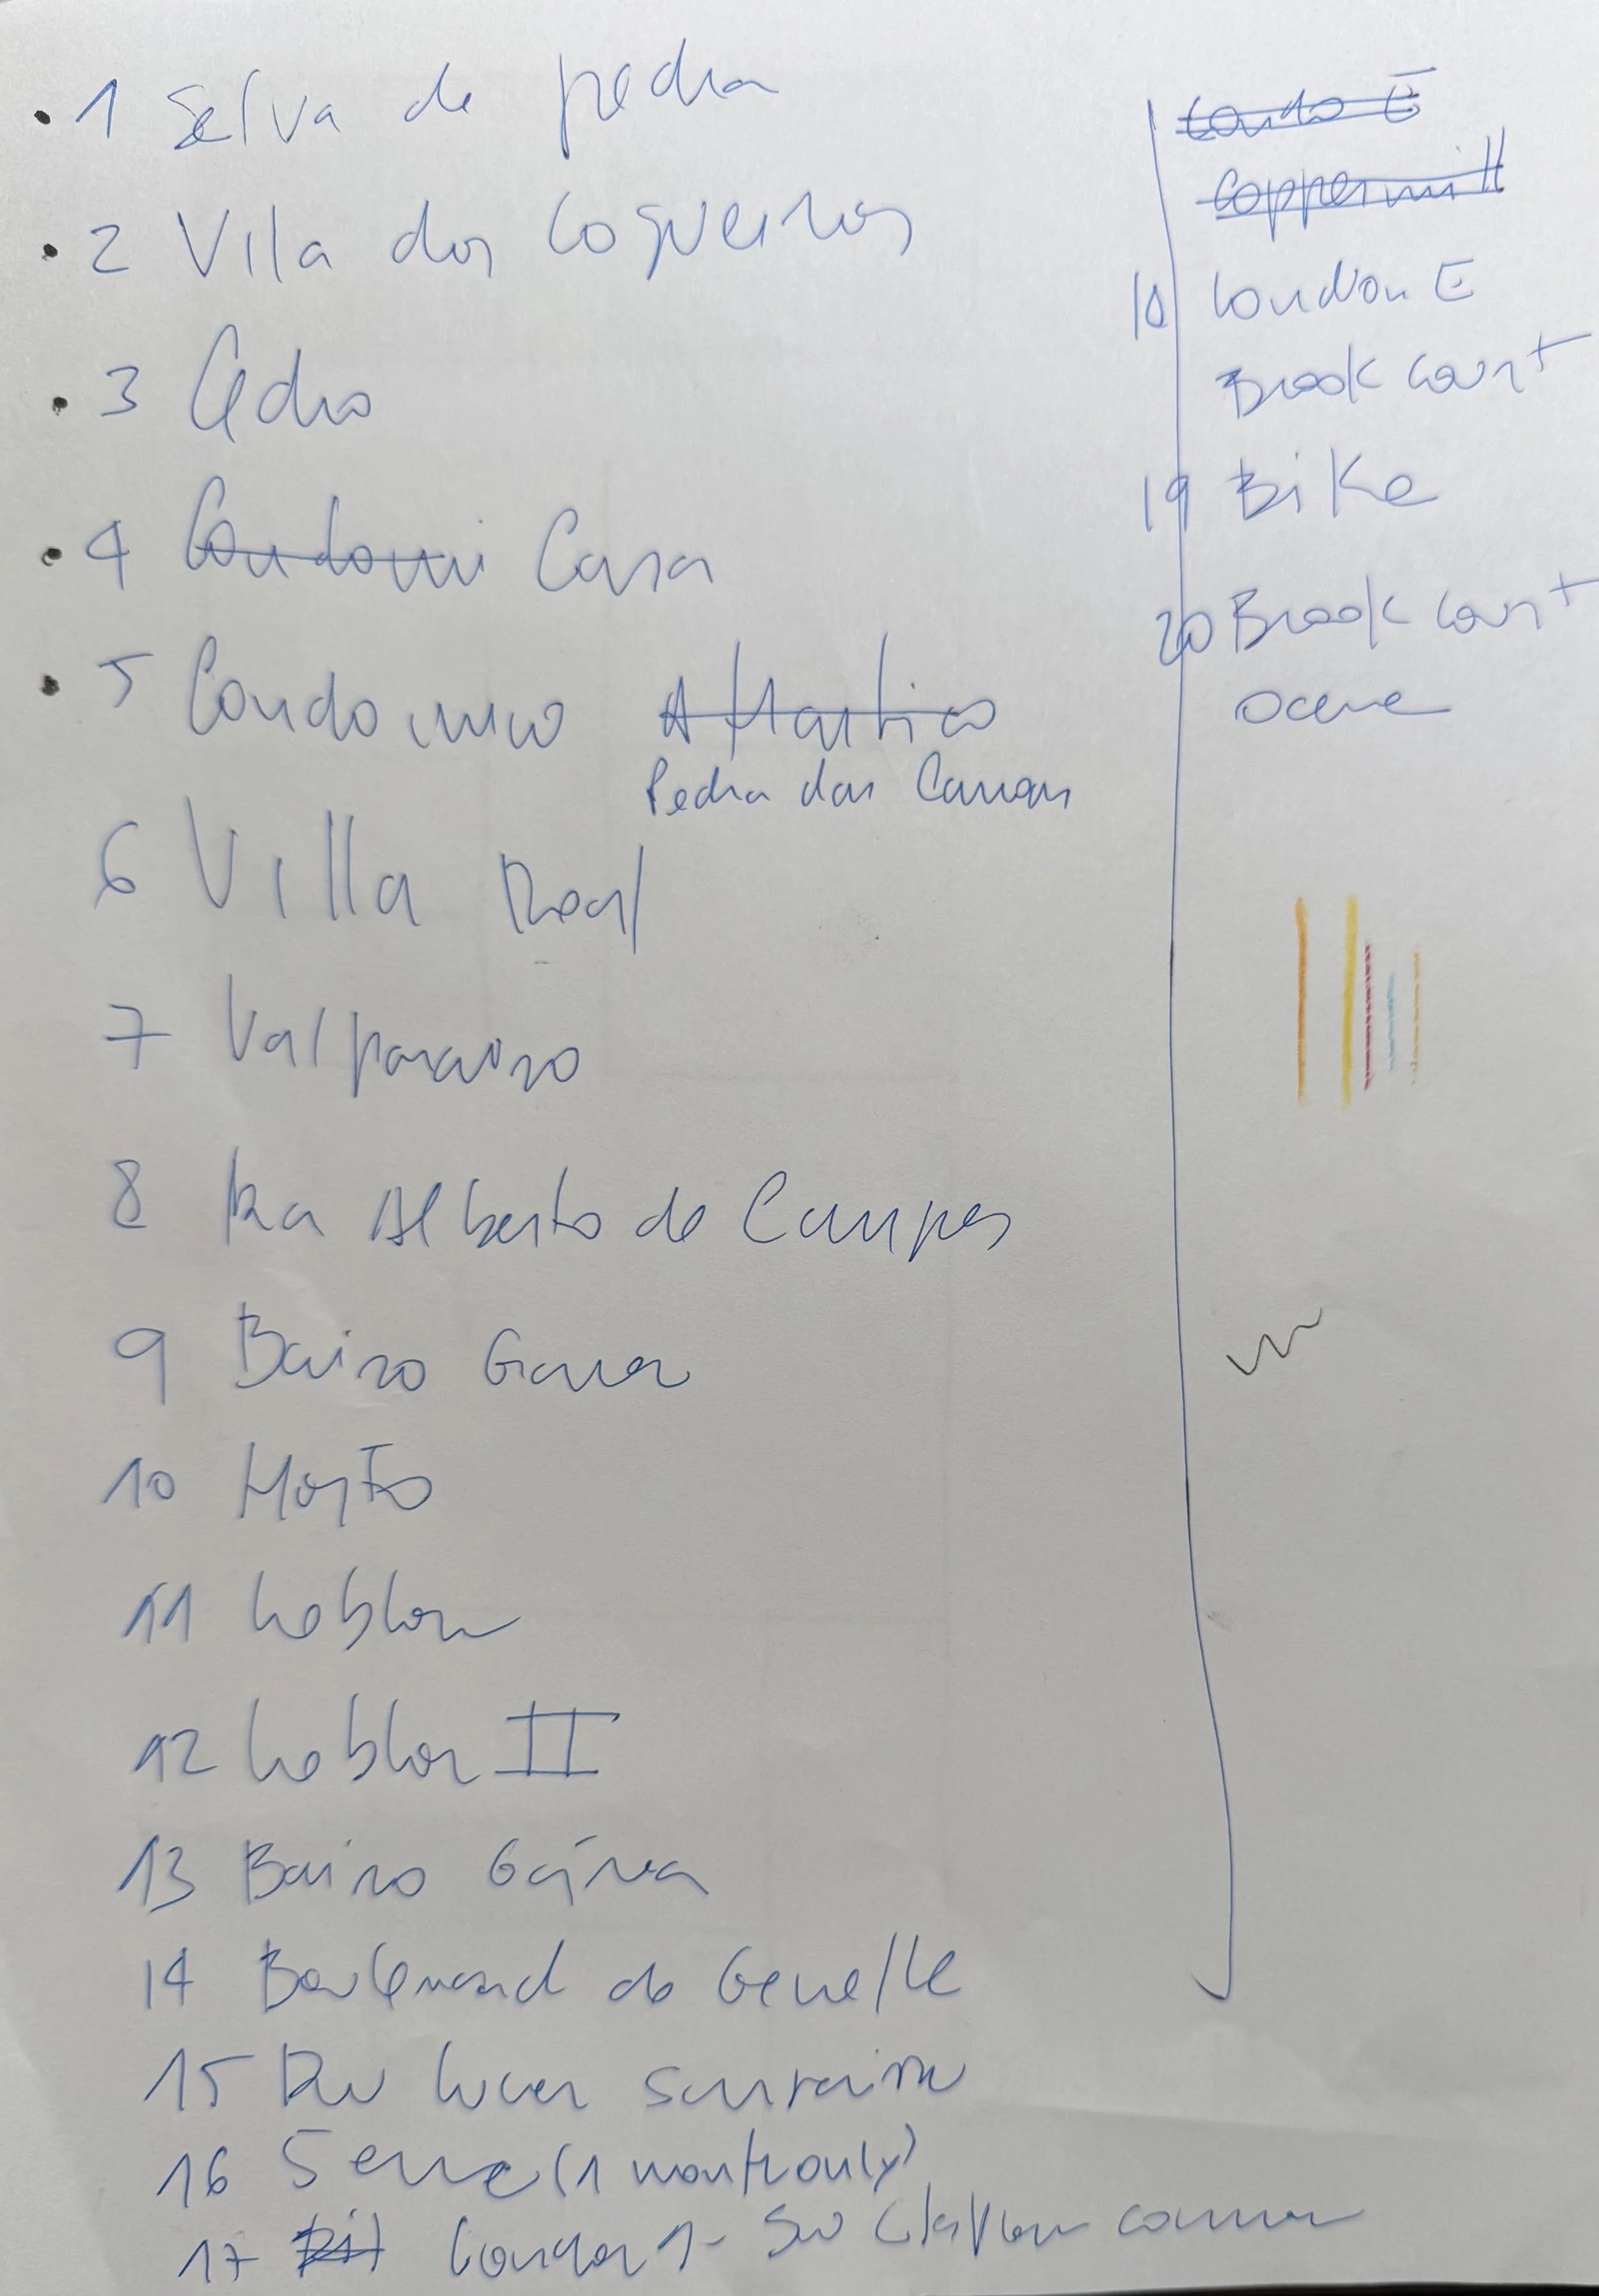 1 Selva de pedra
2 Vila dos Coqueiros
3 Cedro
4 Condomi Casa
5 Condominio Atlantico
Pedra das Canoas
6 Villa Real
7 Valparaiso
8 Alberto de Campos
9 Baixo Gavea
10 Horto
11 Leblon
12 Leblon II
13 Baixo Gávea
14 Boulevard de Grenelle
15 Rue Lucien Sampaix
16 (1 month only)
17 London 1- SW Clapham common
Londo E
Coppermill
18 London E
Brook Court
19 Bike
20 Brook Court